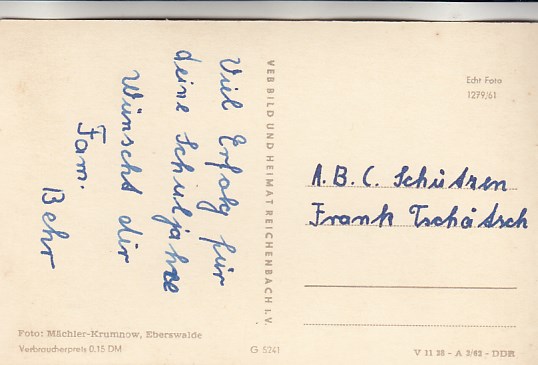 Viel Erfolg für
deine Schuljahre
wünscht dir
Fam.
Behr
VEB BILD UND HEIMAT REICHENBACH I. V.
Echt Foto
1279/61
A. B. C. Schützen
Frank Tschätsch
Foto: Mächler-Krumnow, Eberswalde
Verbraucherpreis 0,15 DM
G 5241
V 11 28 - A 2/62 - DDR